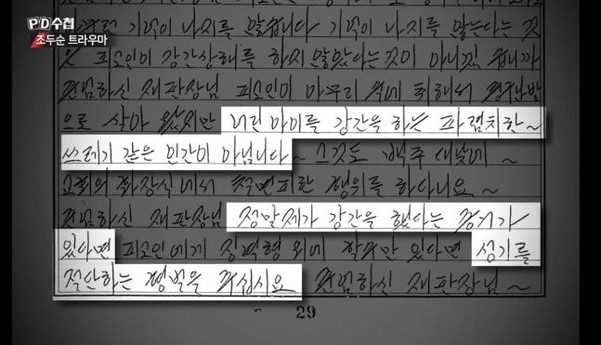 PD수첩
조두순 트라우마
기억이 나지를 않습니다 기억이 나지를 않는다는 것
은 피고인이 강간상해를 하지 않았다는 것이 아니겠습니까
존엄하신 재판장님 피고인이 아무리 술에 취해서
으로 살아 왔지만 어린 아이를 강간을 하는 파렴치한~
쓰레기 같은 인간이 아닙니다~ 그것도 백주 대낮에~
교회의 화장실에서 철면피한 행위를 하다니요~
존엄하신 재판장님 정말 제가 강간을 했다는 증거가
있다면 피고인에게 징역형 외에 할 수만 있다면 성기를
절단하는 형벌을 주십시요 존엄하신 재판장님~
29